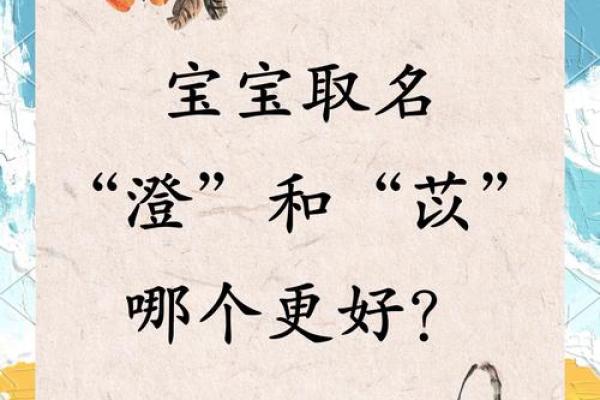 宝宝取名
“澄”和“苡”
哪个更好？